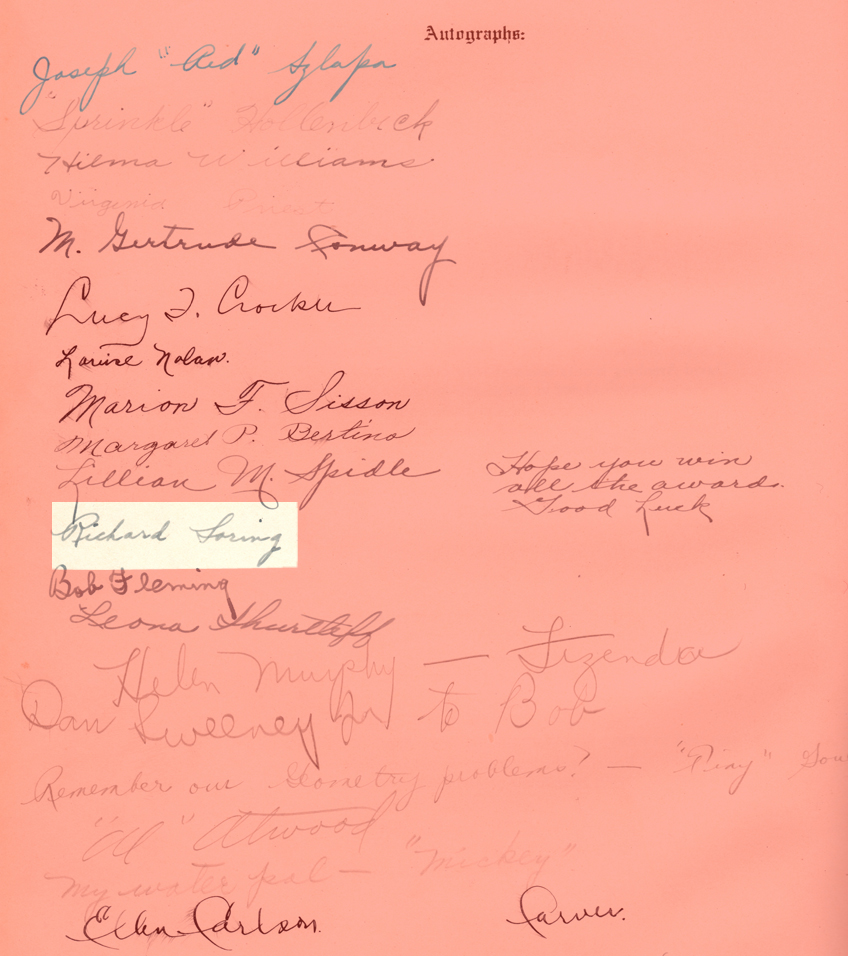 Autographs:
Joseph "Aid" Szlapa
"Sprinkle" Hollenbick
Hilma Williams
Virginia Priest
M. Gertrude Conway
Lucy F. Crocker
Louise Nolan.
Marion F. Sisson
Margaret P. Bertino
Lillian M. Spidle
Hope you win
all the awards.
Good Luck
Richard Loring
Bob Fleming
Leona Shurtleff
Helen Murphy —
Dan Sweeney Jr to Bob
Remember our Geometry problems? — "Tiny"
"Al" Atwood
My water pal — "Mickey"
Ellen Carlson.
Carver.